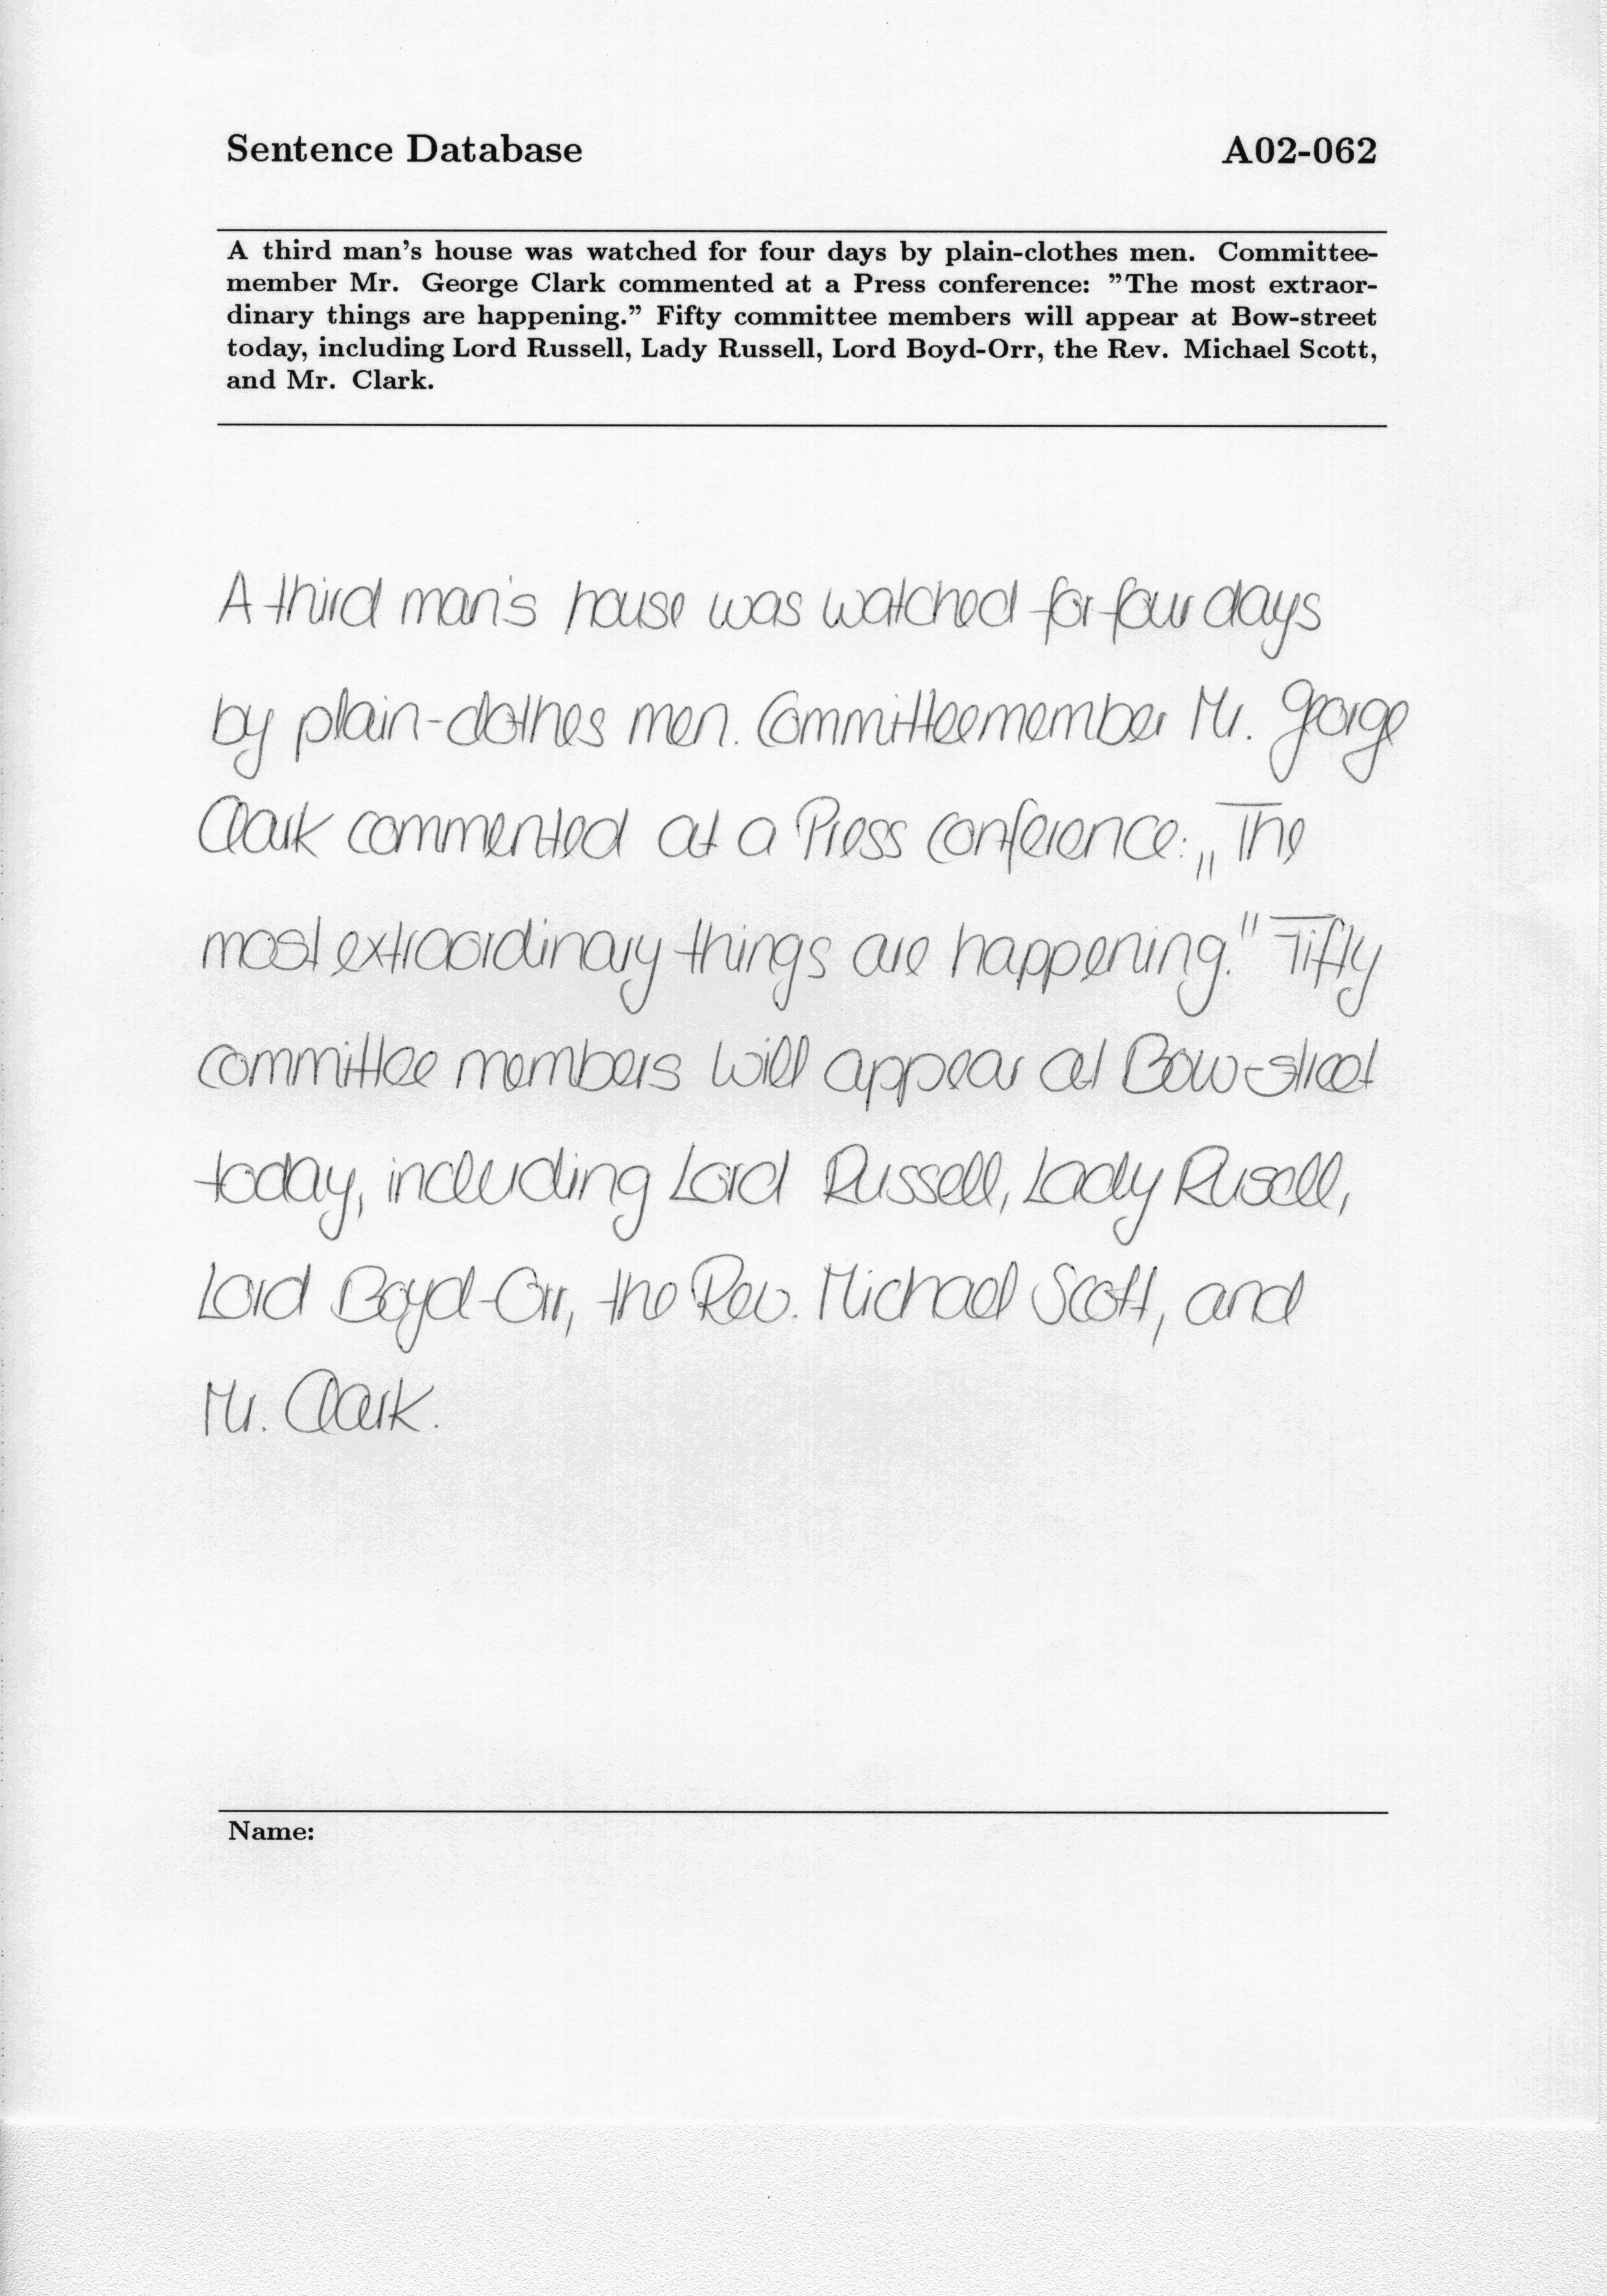 Sentence Database A02-062
A third man's house was watched for four days by plain-clothes men. Committee-
member Mr. George Clark commented at a Press conference: "The most extraor-
dinary things are happening." Fifty committee members will appear at Bow-street
today, including Lord Russell, Lady Russell, Lord Boyd-Orr, the Rev. Michael Scott,
and Mr. Clark.
A third man's house was watched for four days
by plain-clothes men. Committeemember Mr. George
Clark commented at a Press conference: „The
most extraordinary things are happening." Fifty
committee members will appear at Bow-street
today, including Lord Russell, Lady Rusell,
Lord Boyd-Orr, the Rev. Michael Scott, and
Mr. Clark.
Name: